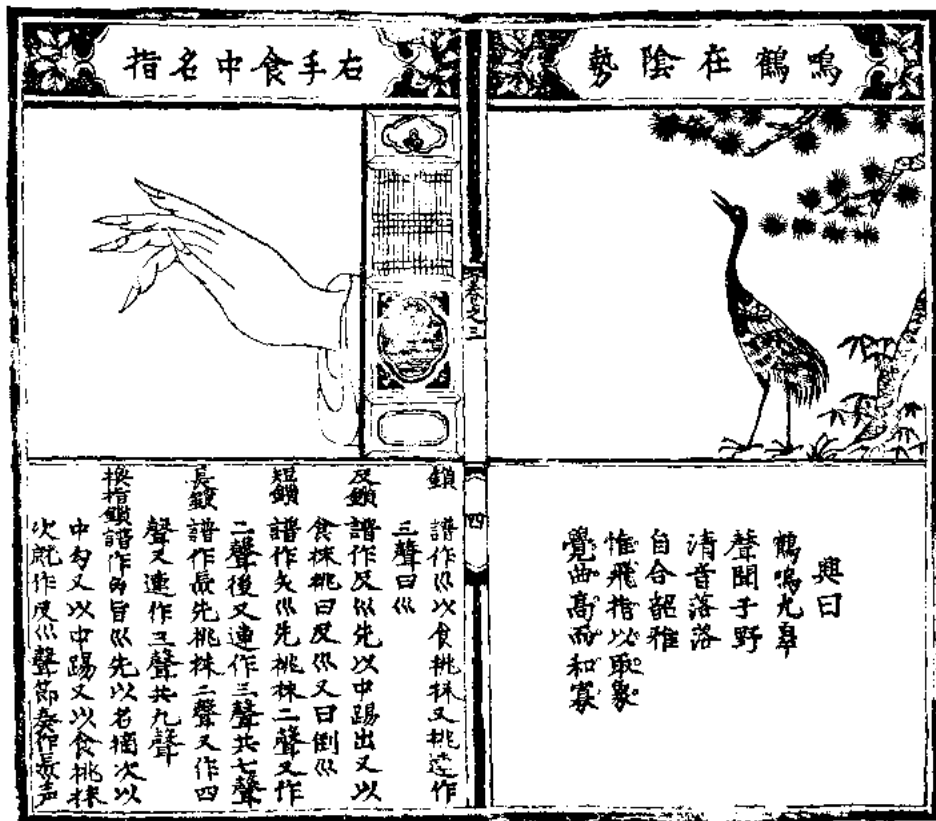 鳴鶴在陰勢
興曰
鶴鳴九皋
聲聞于野
清音落落
自合韶雅
惟飛指以取象
覺曲高而和寡
卷之三
四
右手食中名指
鎖 譜作巛以食挑抹又挑連作
三聲曰巛
反鎖 譜作反巛先以中踢出又以
食抹挑曰反巛又曰倒巛
短鎖 譜作矢巛先挑抹二聲又作
二聲後又連作三聲共七聲
長鎖 譜作長先挑抹二聲又作四
聲又連作三聲共九聲
換指鎖 譜作 旨巛先以名摘次以
中勾又以中踢又以食挑抹
次就作反巛聲節奏作長声